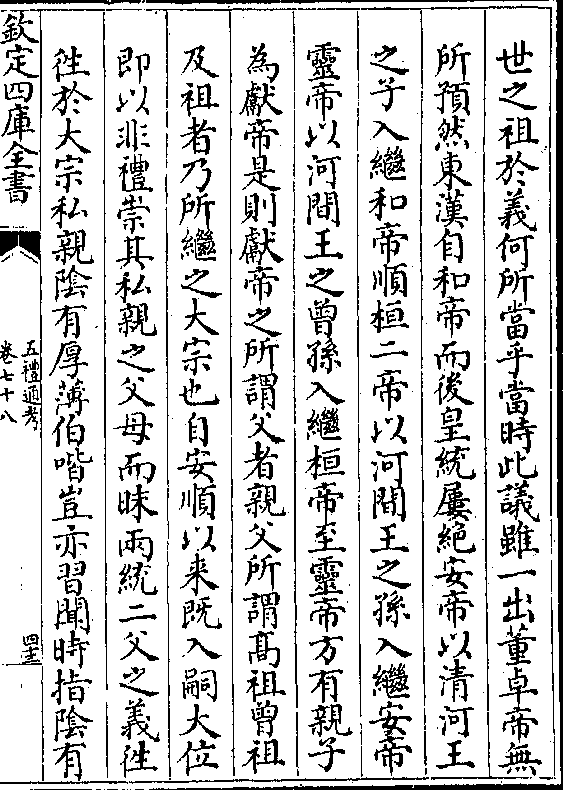 世之祖於義何所當乎當時此議雖一出董卓帝無
所預然東漢自和帝而後皇統屢絕安帝以清河王
之子入繼和帝順桓二帝以河間王之孫入繼安帝
靈帝以河間王之曾孫入繼桓帝至靈帝方有親子
為獻帝是則獻帝之所謂父者親父所謂髙祖曾祖
及祖者乃所繼之大宗也自安順以来既入嗣大位
即以非禮崇其私親之父母而昧兩統二父之義徃
徃於大宗私親陰有厚薄伯喈豈亦習聞時指陰有
欽定四庫全書
五禮通考
卷七十八